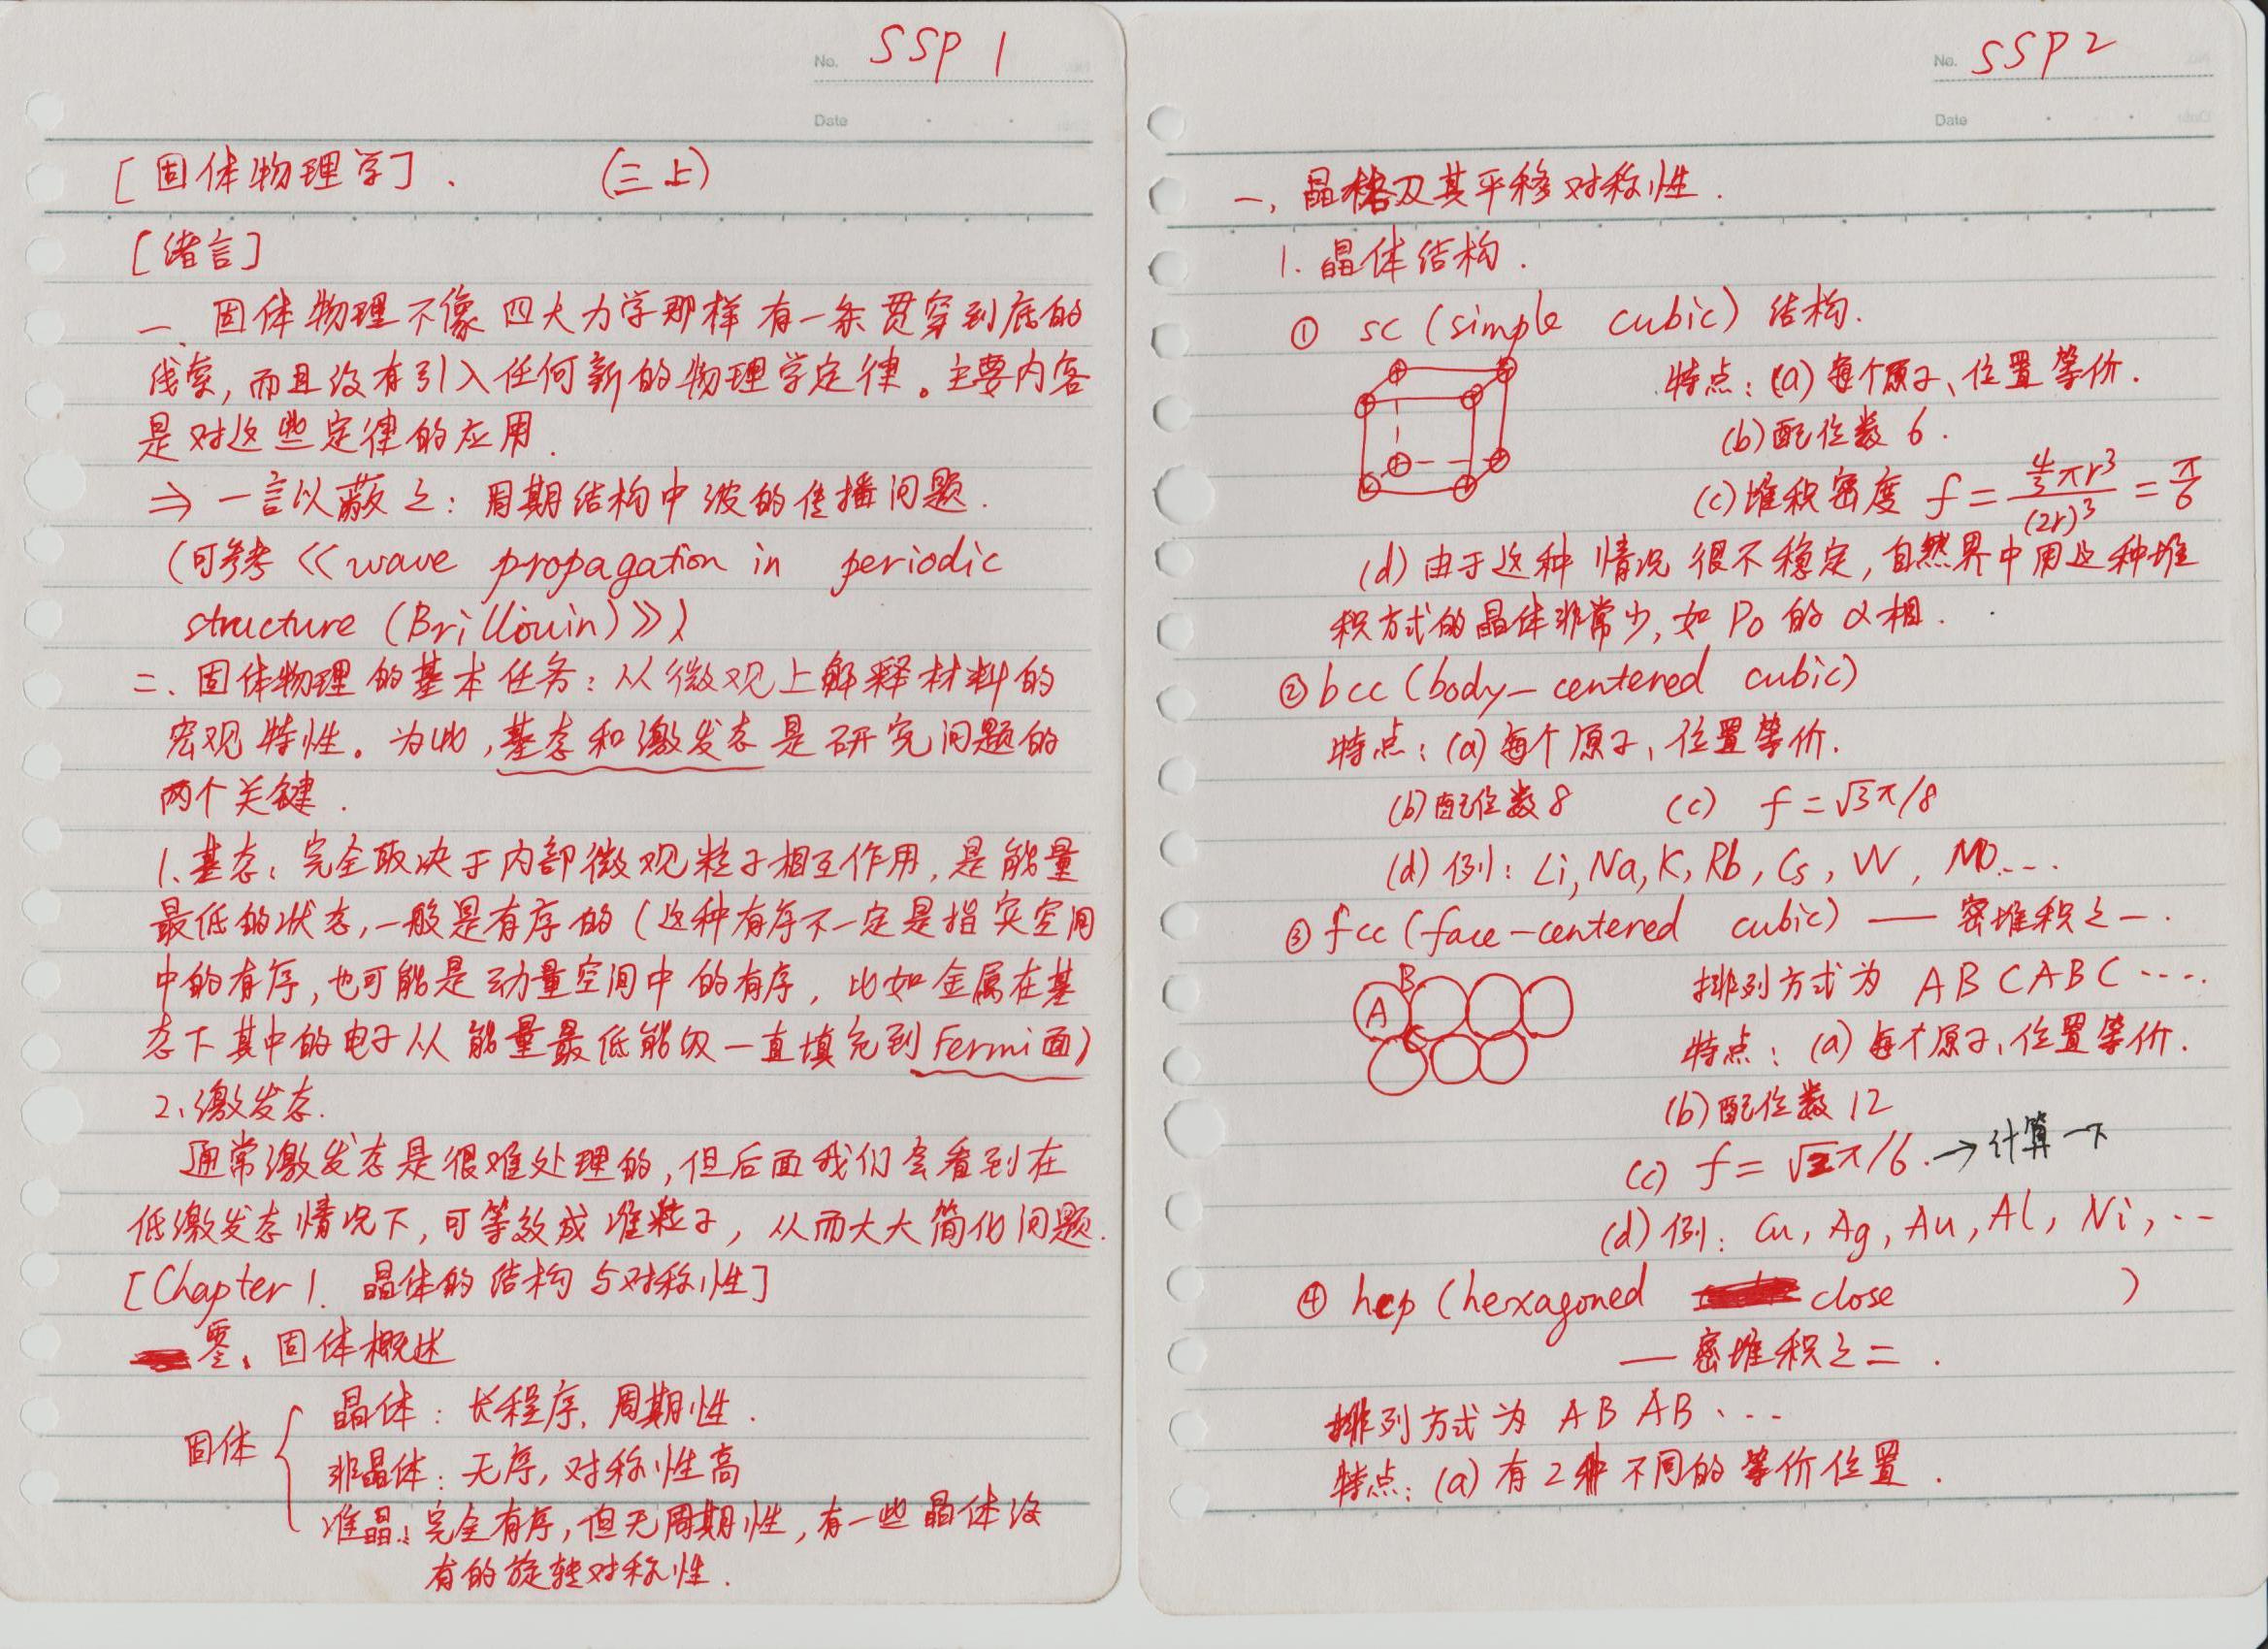 No. SSP 1
Date
[固体物理学]. (三上)
[绪言]
一、固体物理不像四大力学那样有一条贯穿到底的
线索,而且没有引入任何新的物理学定律。主要内容
是对这些定律的应用.
⇒ 一言以蔽之: 周期结构中波的传播问题.
(可参考《wave propagation in periodic
structure (Brillouin)》)
二、固体物理的基本任务: 从微观上解释材料的
宏观特性。为此,基态和激发态是研究问题的
两个关键.
1、基态: 完全取决于内部微观粒子相互作用,是能量
最低的状态,一般是有序的(这种有序不一定是指实空间
中的有序,也可能是动量空间中的有序,比如金属在基
态下其中的电子从能量最低能级一直填充到Fermi面)
2、激发态.
通常激发态是很难处理的,但后面我们会看到在
低激发态情况下,可等效成准粒子,从而大大简化问题.
[Chapter 1. 晶体的结构与对称性]
零、固体概述
固体
晶体: 长程序,周期性.
非晶体: 无序,对称性高
准晶: 完全有序,但无周期性,有一些晶体没
有的旋转对称性.
No. SSP 2
Date
一、晶格及其平移对称性.
1. 晶体结构.
① sc (simple cubic) 结构.
特点: (a) 每个原子、位置等价.
(b) 配位数 6.
(c) 堆积密度 f = \frac{\frac{4}{3}πr³}{(2r)³} = \frac{π}{6}
(d) 由于这种情况很不稳定,自然界中用这种堆
积方式的晶体非常少,如Po的α相.
② bcc (body-centered cubic)
特点: (a) 每个原子、位置等价.
(b) 配位数8 (c) f = √3π/8
(d) 例: Li, Na, K, Rb, Cs, W, Mo...
③ fcc (face-centered cubic) — 密堆积之一.
A B C
排列方式为 ABCABC ....
特点: (a) 每个原子、位置等价.
(b) 配位数 12
(c) f = √2π/6. → 计算一下
(d) 例: Cu, Ag, Au, Al, Ni, ..
④ hcp (hexagoned close )
— 密堆积之二.
排列方式为 ABAB ...
特点: (a) 有2种不同的等价位置.